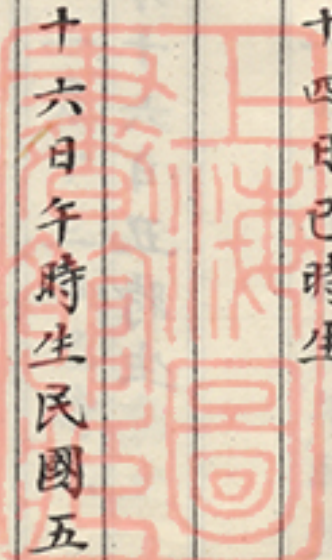 十四日巳時生
十六日午時生民國五
上海圖
書館藏